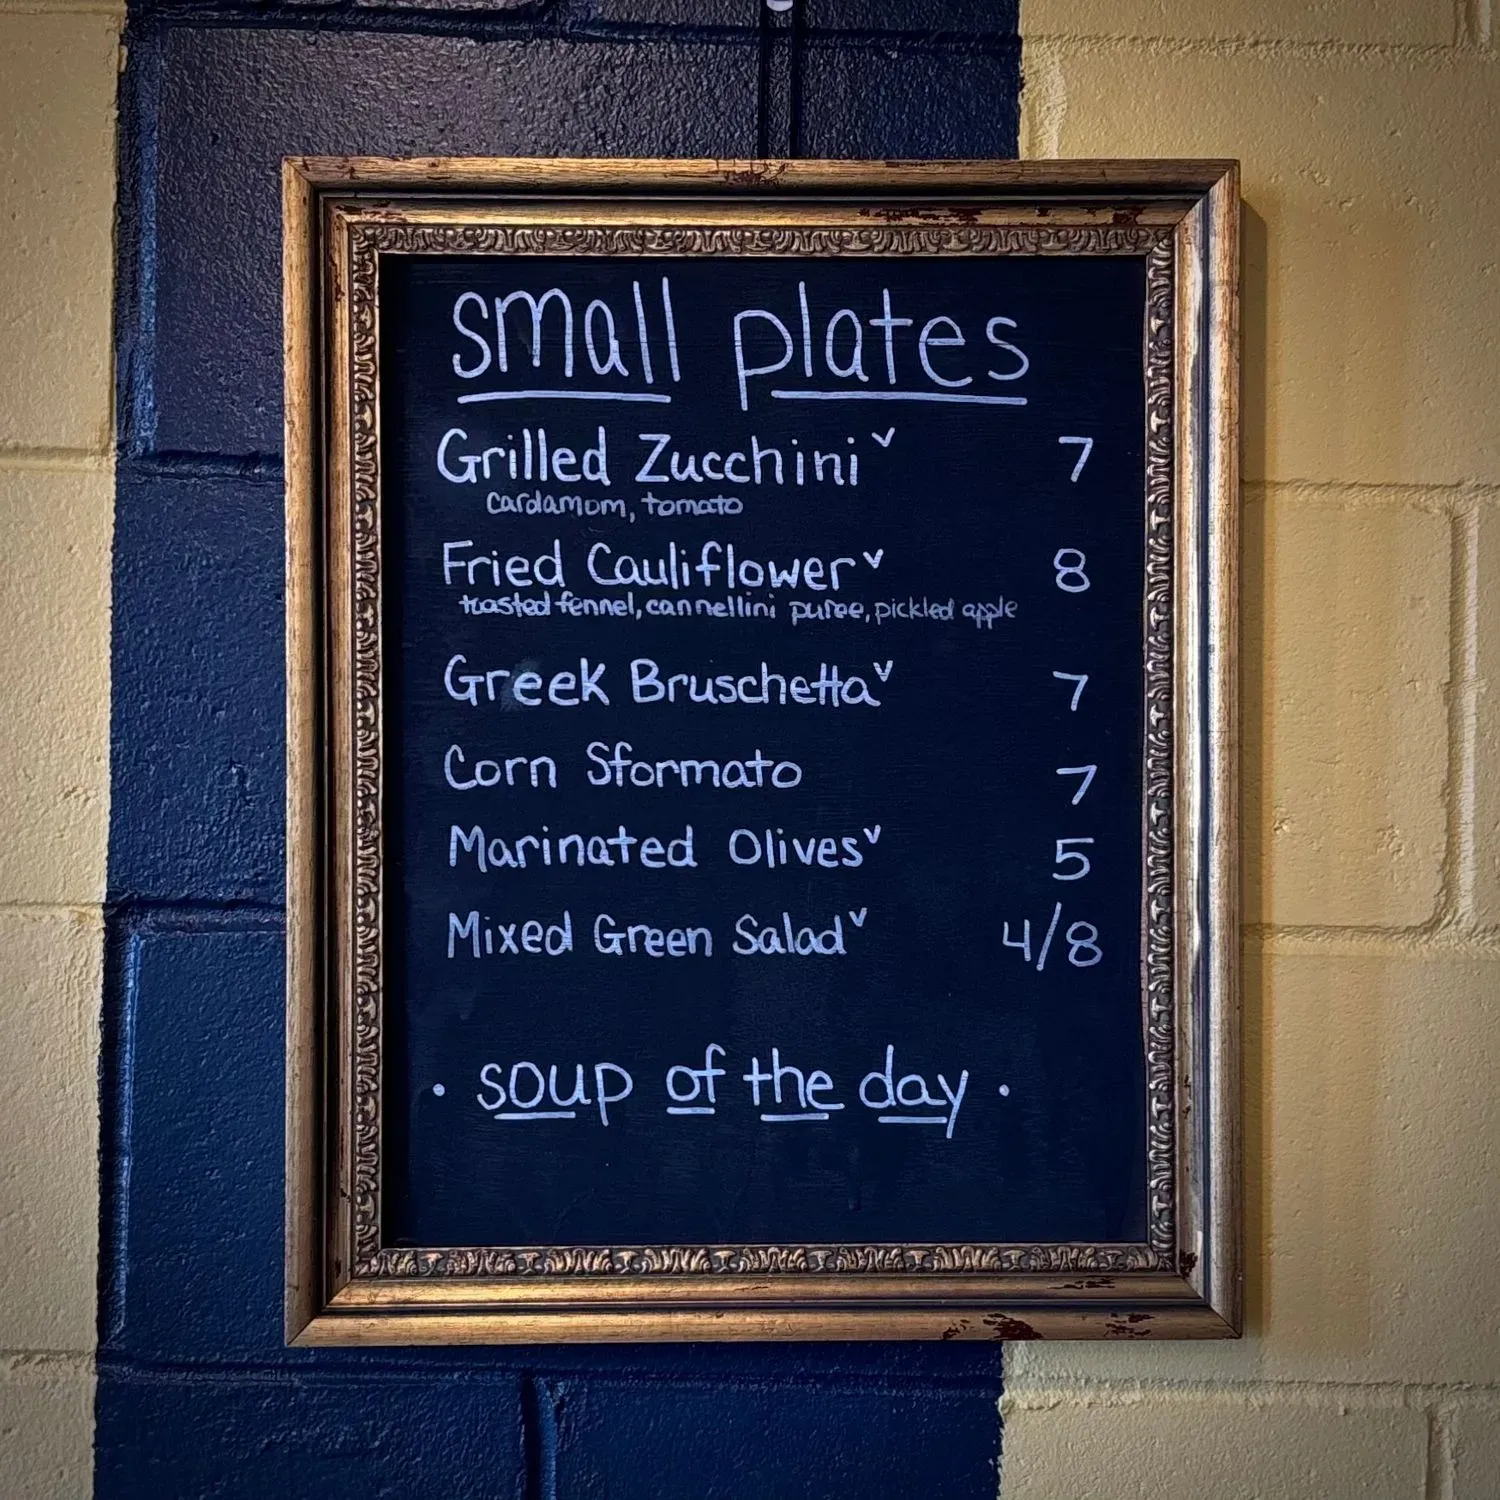 small plates
Grilled Zucchini v 7
cardamom, tomato
Fried Cauliflower v 8
toasted fennel, cannellini puree, pickled apple
Greek Bruschetta v 7
Corn Sformato 7
Marinated Olives v 5
Mixed Green Salad v 4/8
• soup of the day •